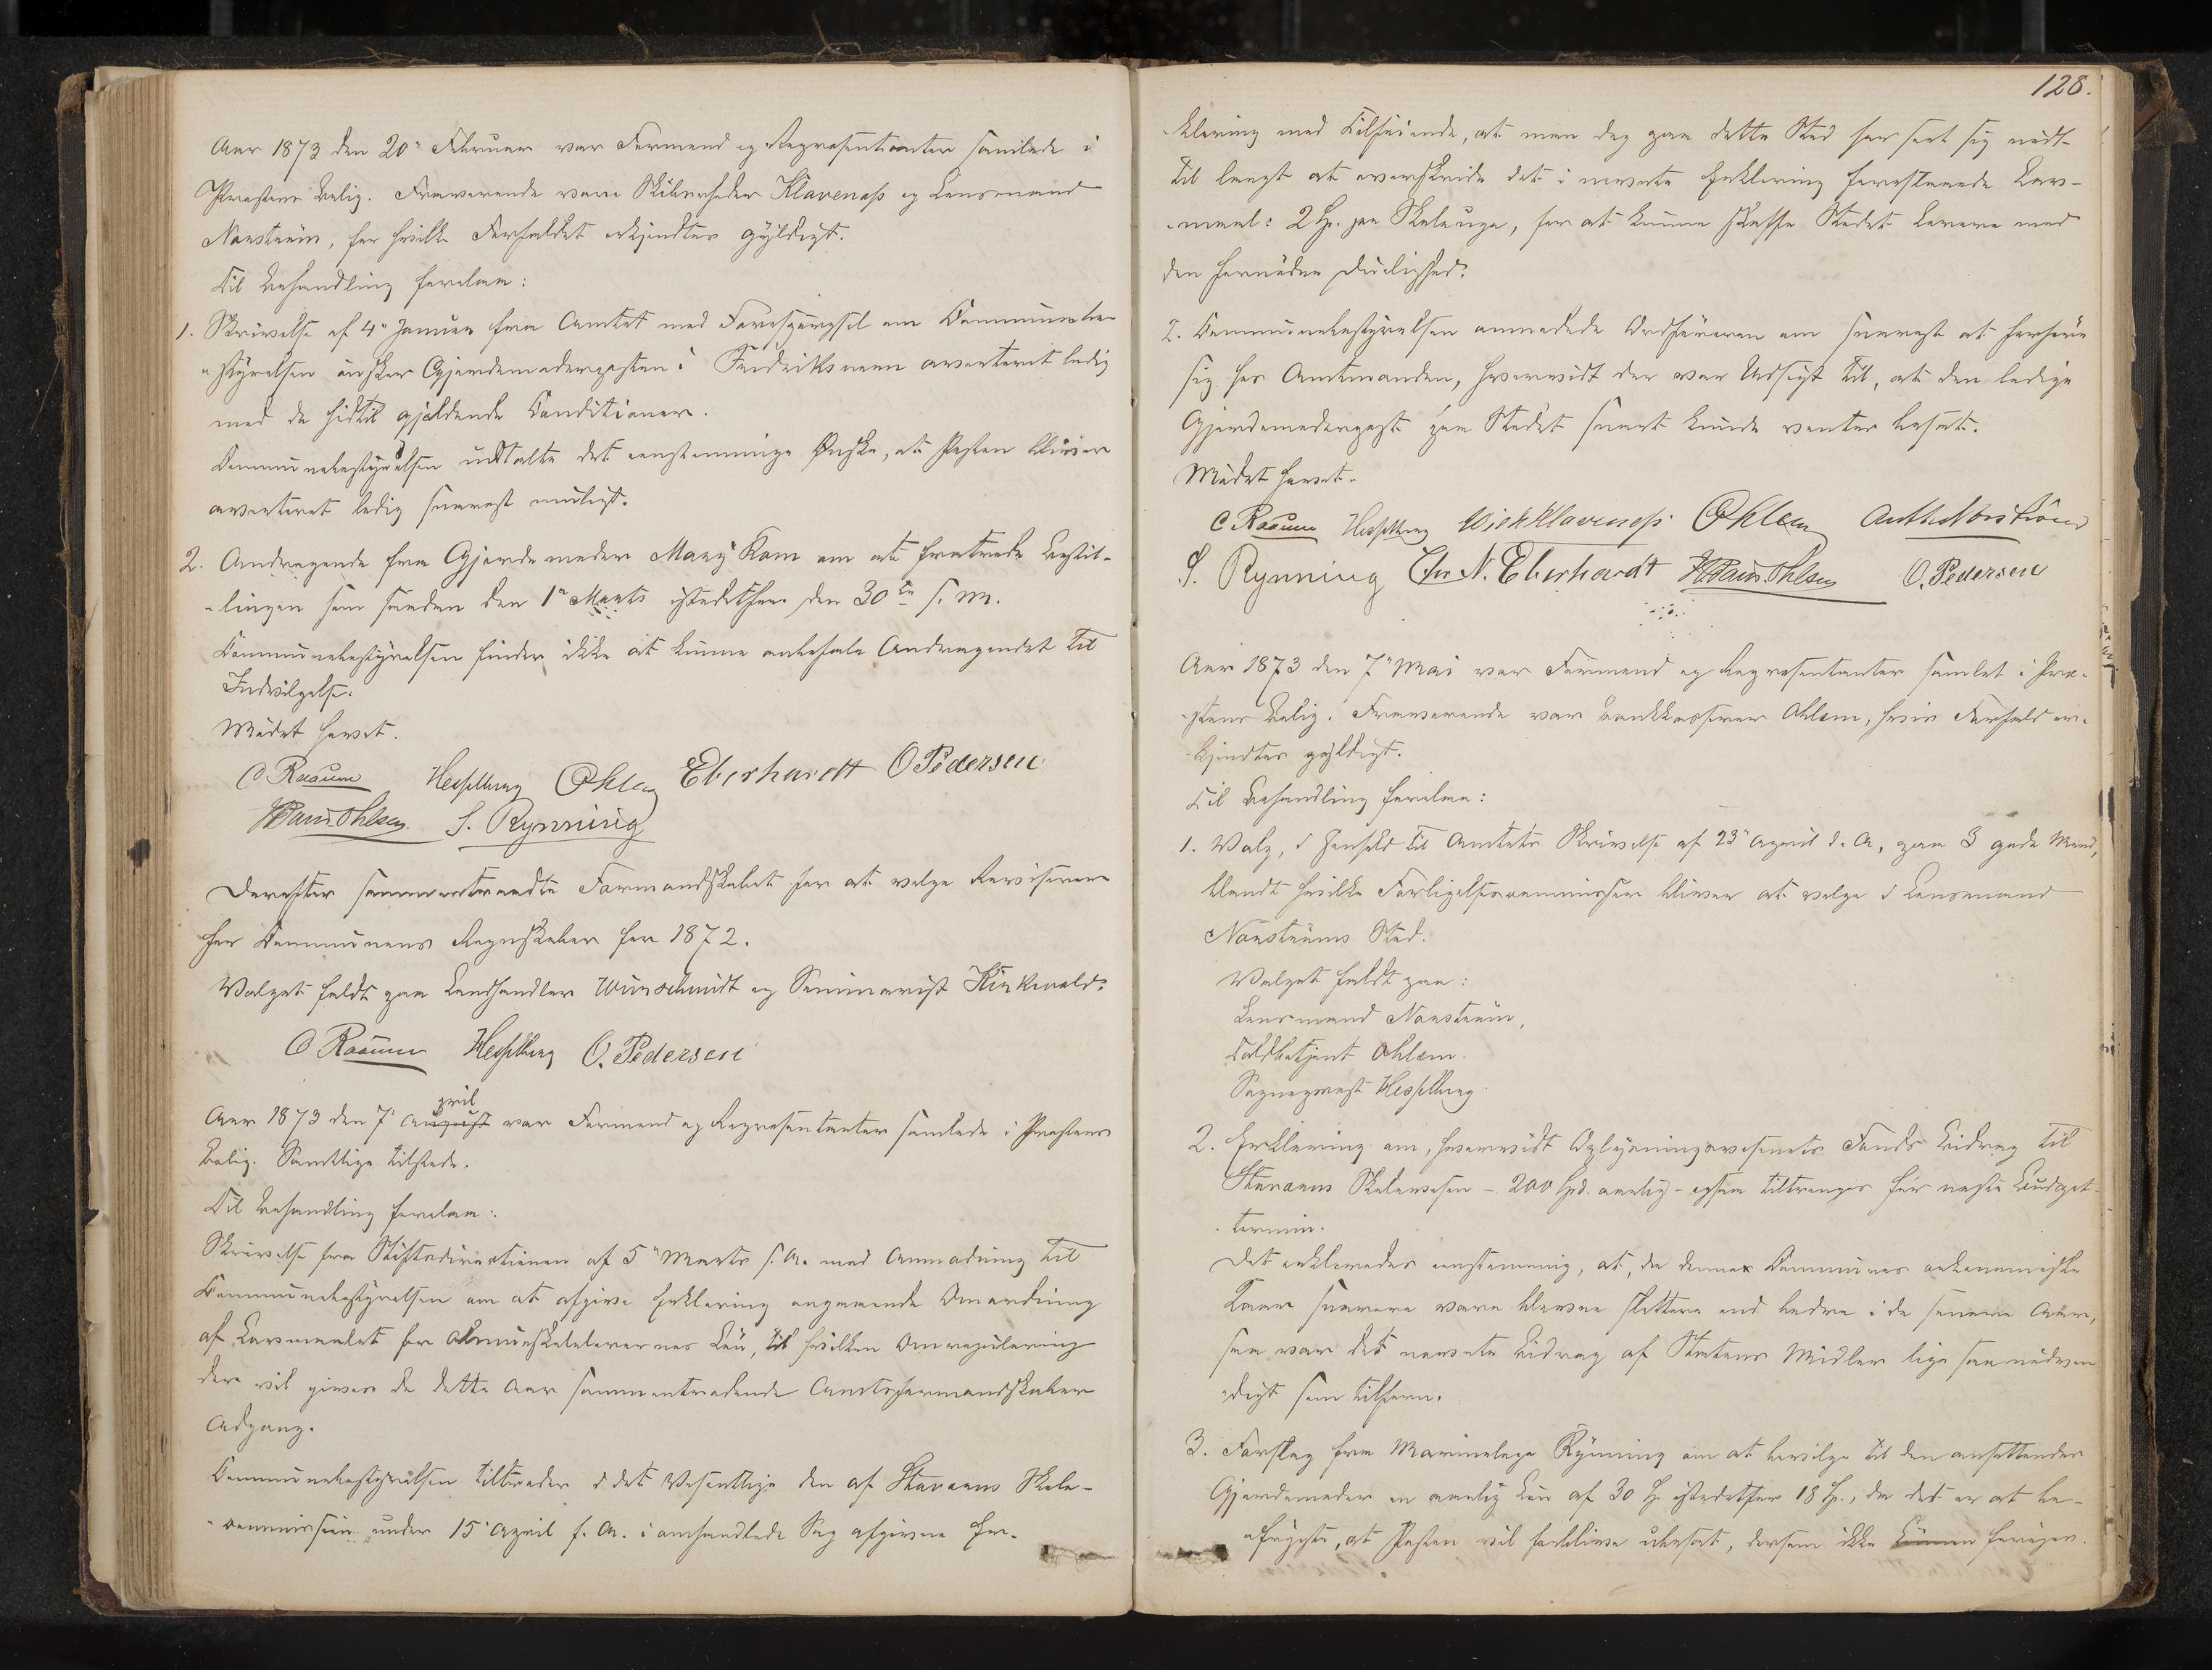 Aar 1873 den 20de Februar var Formend og Representanter samlede i
Præstens Bolig. Fraværende vare Skibsreder Klavenæss og Lensmand
Norstrøm, for hvilke Forfaldet erkjendtes gyldigt.
Til Behandling forelaa:
1. Skrivelse af 4de Januar fra Amtet med Forespørgsel om Communebe-
styrelsen ønsker Gjordemoderposten i Fredriksværn averteret ledig
med de hidtil gjældende Conditioner.
Communebestyrelsen udtalte det eenstemmige Ønske, at Posten bliver
averteret ledig snarest muligt.
2. Andragende fra Gjordemoder Mary Kom om at fratræde Bestil-
lingen som saadan den 1ste Marts istedetfor den 30te s. M.
Communebestyrelsen finder ikke at kunne anbefale Andragendet til
Indvilgelse.
Mødet hævet.
C Raaum Hesselberg Ohlen Eberhardt O Pedersen
H Paus Ohlsen S. Rynning
Derefter sammentraadte Formandskabet for at vælge Revisorer
for Communens Regnskaber for 1872.
Valget faldt paa Landhandler Wurschmidt og Seminarist Kirkvold.
C Raaum Hesselberg O. Pedersen
pril
Aar 1873 den 7de August var Formend og Representanter samlede i Præstens
Bolig. Samtlige tilstede.
Til Behandling forelaa:
Skrivelse fra Stiftsdirectionen af 5te Marts s. A. med Anmodning til
Communebestyrelsen om at afgive Erklæring angaaende Omordning
af Lavmaalet for Almueskolelærernes Løn, til hvilken Omregulering
der vil gives de dette Aar sammentrædende Amtsformandskaber
Adgang.
Communebestyrelsen tiltræder i det Væsentlige den af Staværns Skole-
commission under 15de April s. A. i omhandlede Sag afgivne Er-
128.
klæring med Tilføiende, at man dog paa dette Sted har seet sig nødt
til langt at overskride det i nævnte Erklæring foreslaaede Lav-
maal: 2 Sp. pr Skoleuge, for at kunne skaffe Stedet Lærere med
den fornødne Duelighed.
2. Communebestyrelsen anmodede Ordføreren om snarest at forhøre
sig hos Amtmanden, hvorvidt der var Udsigt til, at den ledige
Gjordemoderpost paa Stedet snart kunde ventes besat.
Mødet hævet.
C Raaum Hesselberg Wich Klavenæss Ohlen Anth Norstrøm
S. Rynning Chr N. Eberhardt H Paus Ohlsen O. Pedersen
Aar 1873 den 7de Mai var Formend og Representanter samlet i Præ-
stens Bolig. Fraværende var Bankkasserer Ohlen, hvis Forfald er-
kjendtes gyldigt.
Til Behandling forelaa:
1. Valg, i Henhold til Amtets Skrivelse af 23de April d. A, paa 3 gode Mænd,
blandt hvilke Forligelsescommissær bliver at vælge i Lensmand
Norstrøms Sted.
Valget faldt paa:
Lensmand Norstrøm,
Toldbetjent Ohlen.
Sogneprest Hesselberg.
2. Erklæring om, hvorvidt Oplysningsvæsenets Fonds Bidrag til
Staværns Skolevæsen - 200 Spd. aarlig - ogsaa tiltrænges for næste Budget-
termin.
Det erklæredes eenstemmig, at, da denne Communes oekonomiske
Kaar snarere vare blevne slettere end bedre i de senere Aar,
saa var det nævnte Bidrag af Statens Midler lige saa nødven
digt som tilforn.
3. Forslag fra Marinelæge Rynning om at bevilge til den ansættendes
Gjordemoder en aarlig Løn af 30 Sp. istedetfor 18 Sp., da det er at be-
frygte, at Posten vil forblive ubesat, dersom ikke Lønnen forøges.